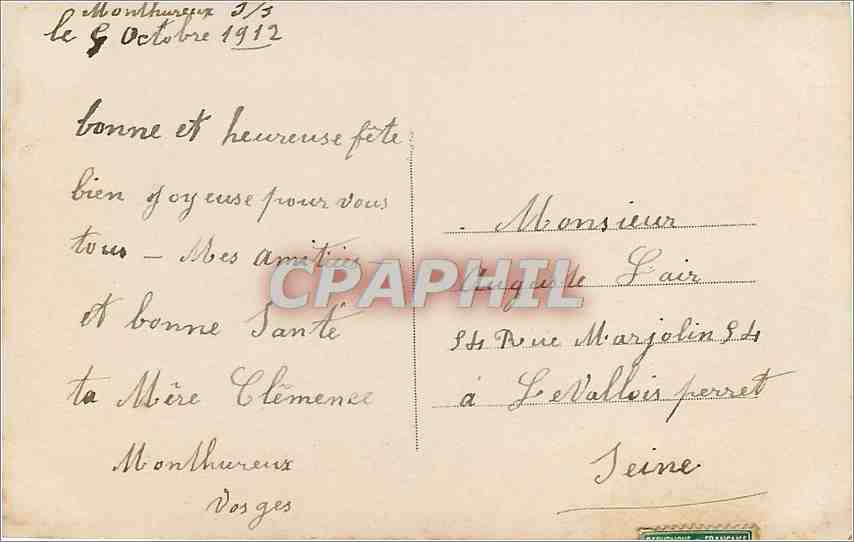 Monthureux S/S
le 5 Octobre 1912
bonne et heureuse fête
bien joyeuse pour vous
tous - Mes amitiés
et bonne Santé
ta Mère Clêmence
Monthureux
Vosges
Monsieur
Auguste Lair
54 Rue Marjolin 54
à LeVallois perret
Seine
CPAPHIL
REPUBLIQUE FRANÇAISE